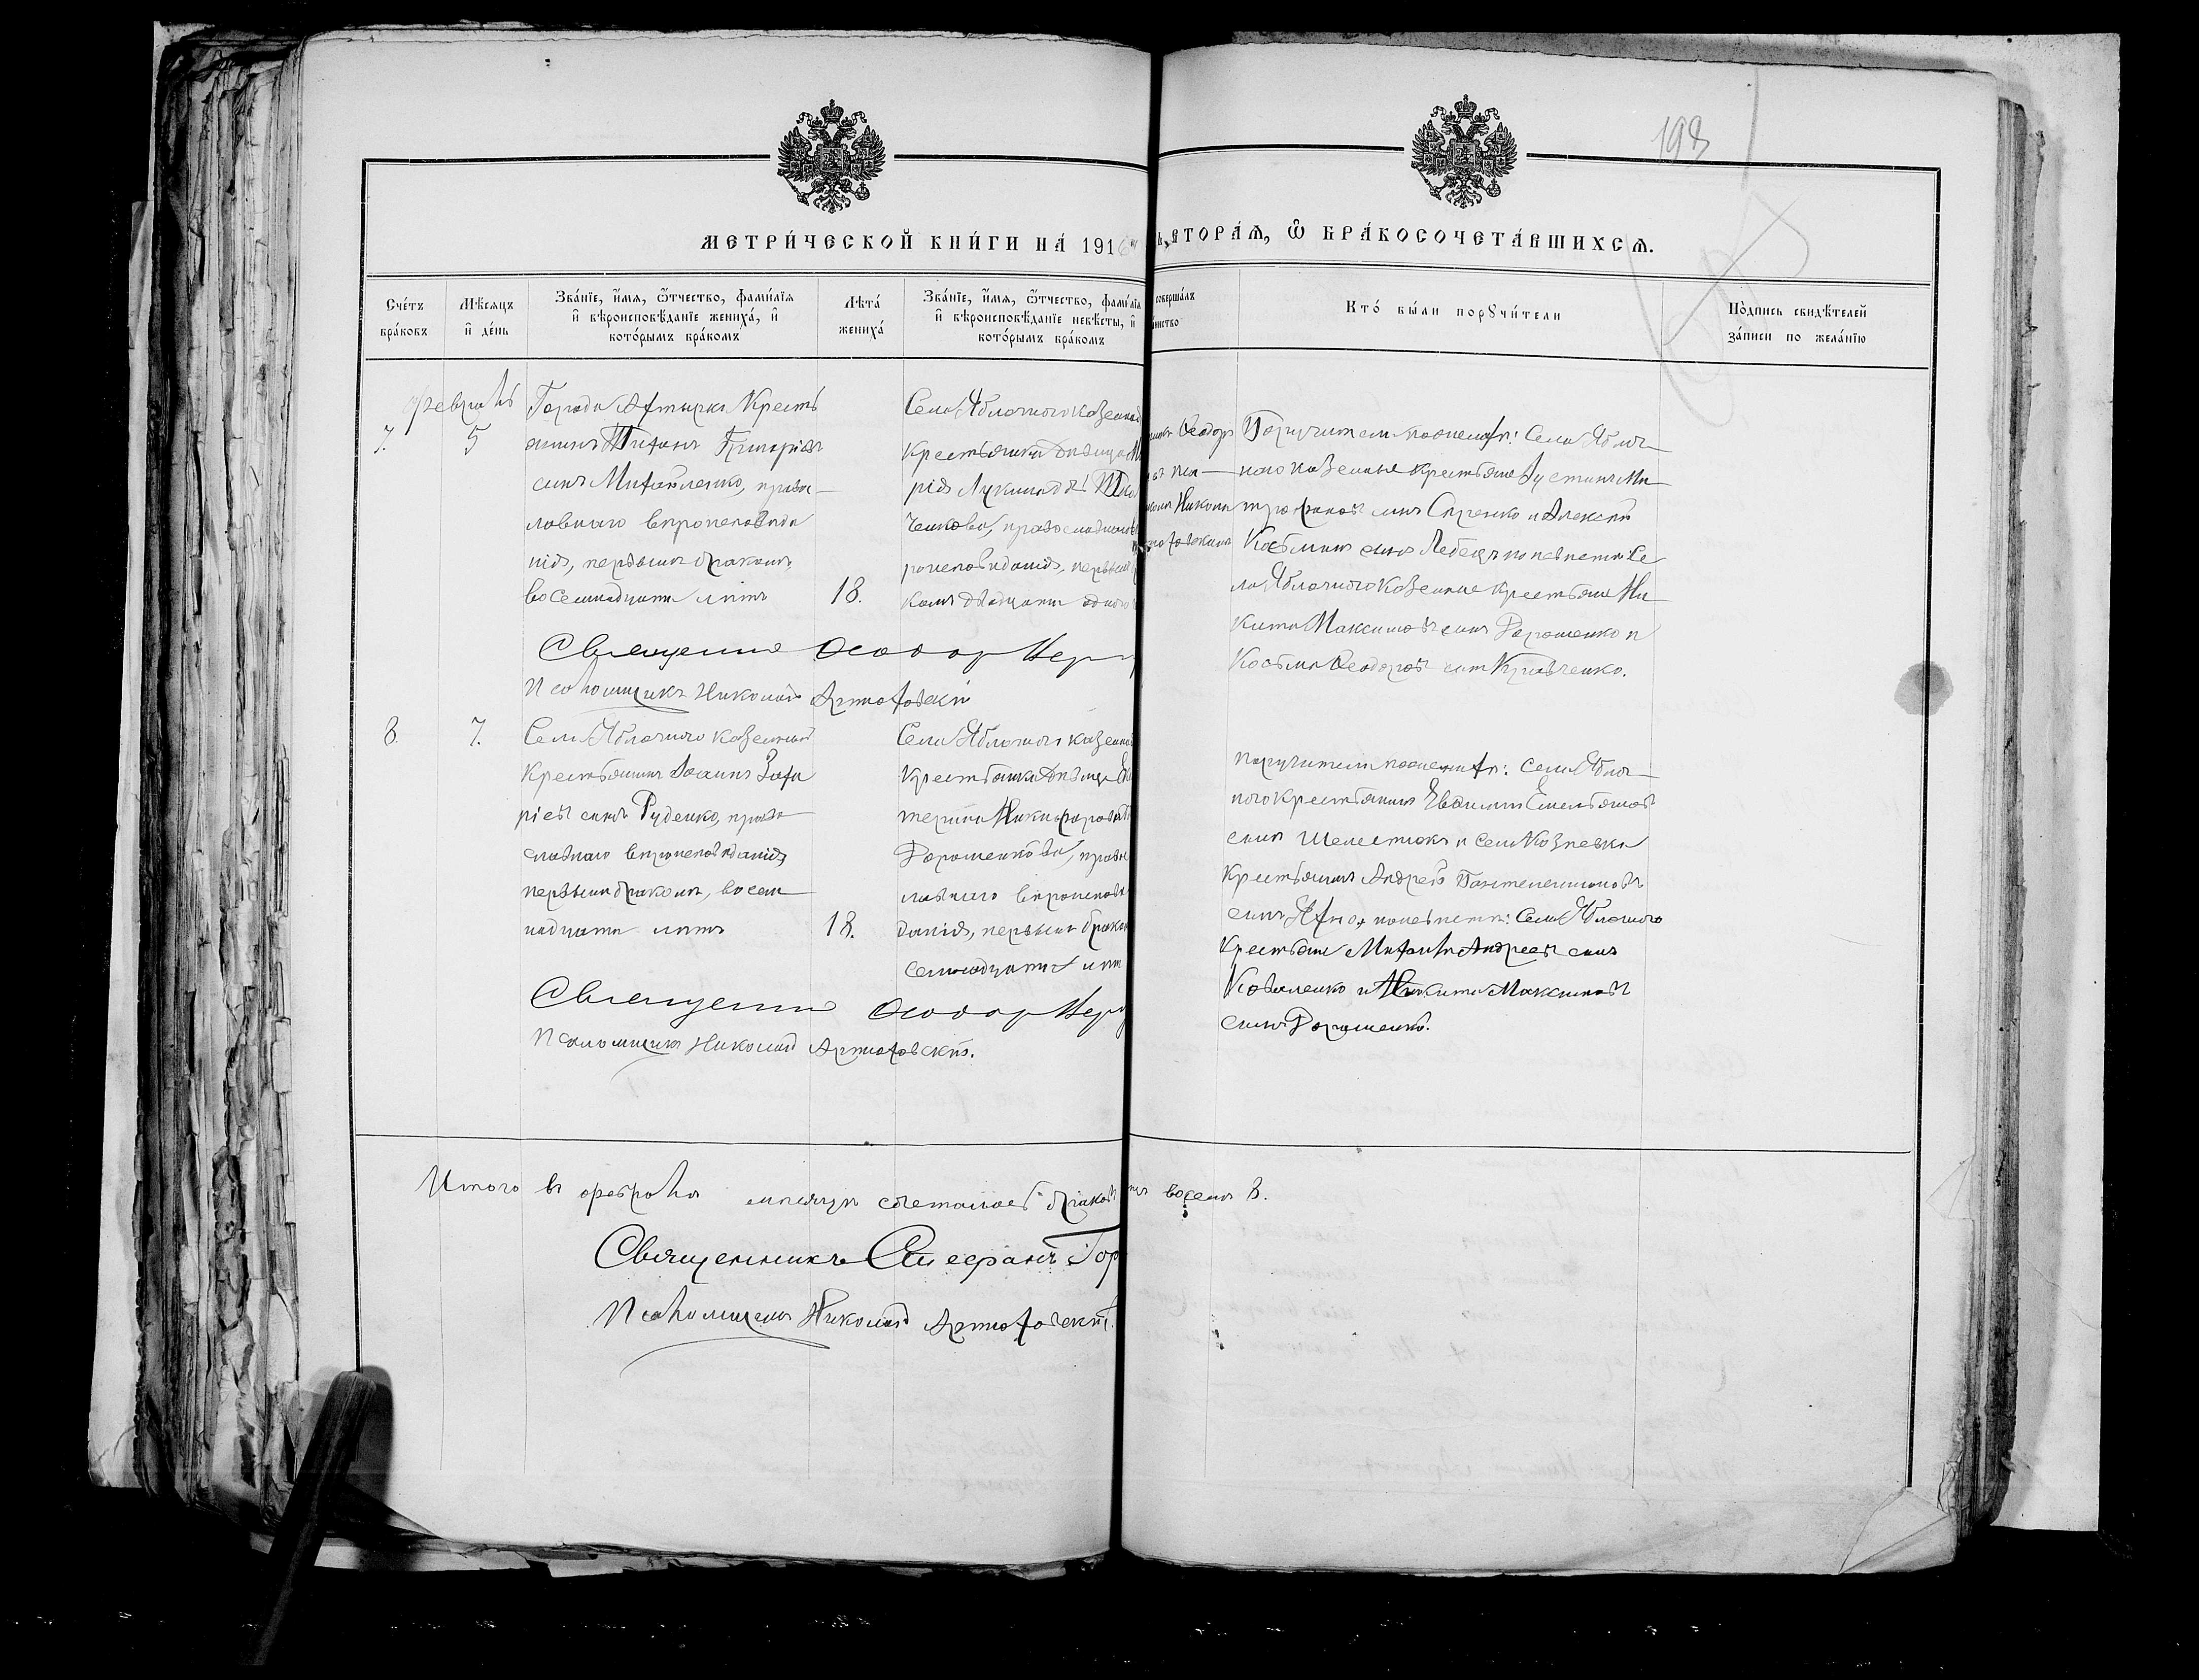 198
МЕТРИ́ЧЕСКОЙ КНИ́ГИ НА́ 1916
ВТОРА́Ѧ, Ѽ БРА́КОСОЧЕТА́ВШИХСѦ.
Сче́тъ бра́ковъ
Мѣ́сяцъ и҆ де́нь
Зва́нїе, и҆́мѧ, ѻ҆́тчество, фами́лїѧ
и҆ вѣ́роисповѣ́данїе жениха́, и҆
кото́рымъ бра́комъ
Лѣта́ жениха́
Зва́нїе, и҆́мѧ, ѻ҆́тчество, фами́лїѧ
и҆ вѣ́роисповѣ́данїе невѣ́сты, и҆
кото́рымъ бра́комъ
соверша́лъ
Кто́ бы́ли порꙋчи́тели
По́дпись свидѣ́телей
за́писи по жела́нїю
февраль
7.
5
Города Ахтырки Кресть
янинъ Тихонъ Григоріевъ
сынъ Михайленко, право-
славнаго вѣроисповѣда
нія, первымъ бракомъ,
восемнадцати лѣтъ
18.
Села Яблочнаго казенная
крестьянка дѣвица
рія Лукина
ченкова, православнаго
роисповѣданія, первымъ
комъ двадцати одного
Ѳеодоръ
Николай
Поручители по женихѣ: Села Яблоч-
наго казенные крестьяне Іустинъ Ми-
трофановъ сынъ и Алексѣй
Косьминъ сынъ Лебедь по невѣстѣ Се
ла Яблочнаго казенные крестьяне Ни-
кита Максимовъ сынъ Дорошенко и
Косьма Ѳеодоровъ сынъ Кравченко.
Священникъ Ѳеодоръ
Псаломщикъ Николай Артюховскій
8.
7.
Села Яблочнаго казенный
Крестьянинъ Іоаннъ Заха
ріевъ сынъ Руденко, право
славнаго вѣроисповѣданія
первымъ бракомъ, восем
надцати лѣтъ
18.
Села Яблочнаго казенная
Крестьянка дѣвица
терина Никифорова
Дорошенкова, право
славнаго вѣроисповѣ
данія, первымъ бракомъ
семнадцати лѣтъ
Поручители по женихѣ: Села Яблоч-
наго крестьянинъ Емельяновъ
сынъ Шелестюкъ и села Козѣевки
Крестьянинъ Андрей Пантелеимоновъ
сынъ по невѣстѣ: Села Яблочнаго
Крестьяне Михаилъ Андреевъ сынъ
Коваленко и Никита Максимовъ
сынъ Дорошенко.
Священникъ Ѳеодоръ
Псаломщикъ Николай Артюховскій.
Итого въ февралѣ мѣсяцѣ сочеталось браковъ восемь 8.
Священникъ
Псаломщикъ Николай Артюховскій.